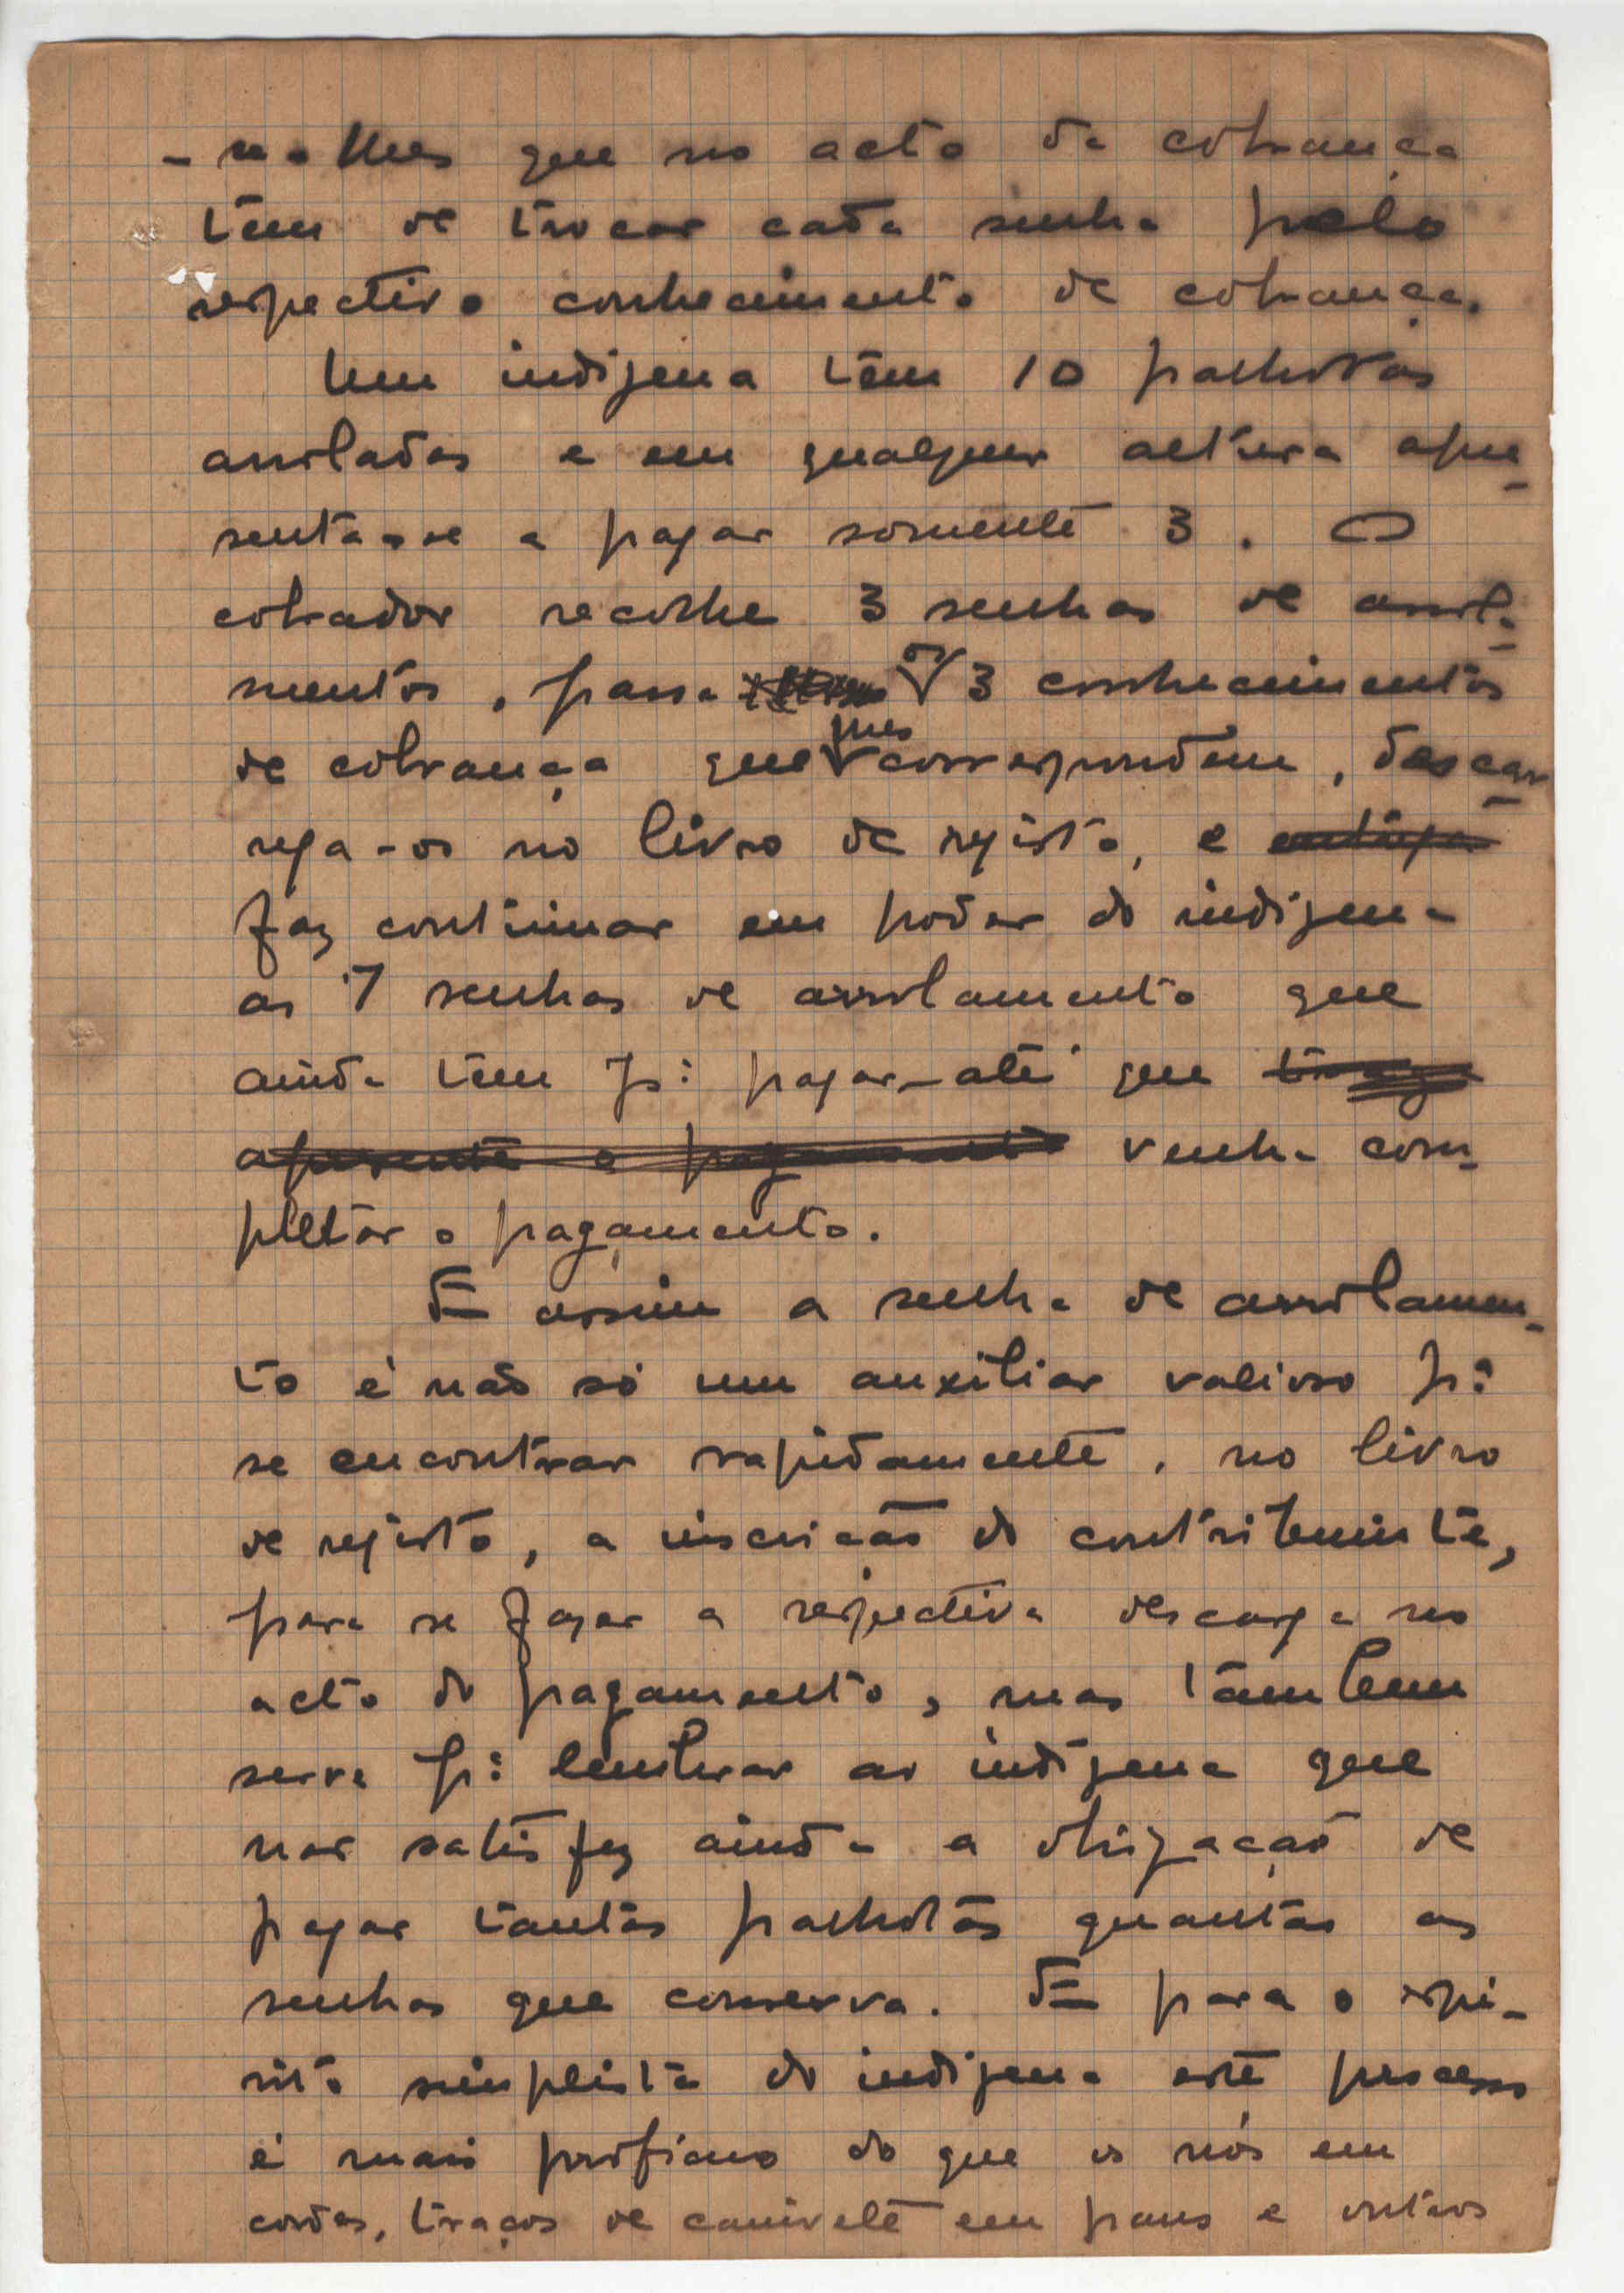 -se-lhes que no acto da cobrança
têm de trocar cada senha pelo
respectivo conhecimento de cobrança.
Um indigena têm 10 palhotas
arroladas e em qualquer altura apre-
senta-se a pagar somente 3. O
cobrador recolhe 3 senhas de arrola-
mentos, passa os 3 conhecimentos
de cobrança que lhes correspondem, descar-
rega-os no livro de registo, e entrega
faz continuar em poder do indigena
as 7 senhas de arrolamento que
ainda tem pª pagar-até que traga
apresente o pagamento venha com-
pletar o pagamento.
E assim a senha de arrolamen-
to é não só um auxiliar valioso pª
se encontrar rapidamente, no livro
de registo, a inscrição do contribuinte,
para se fazer a respectiva descarga no
acto do pagamento, mas tambem
serve pª lembrar ao indigena que
não satisfez ainda a obrigação de
pagar tantas palhotas quantas as
senhas que conserva. E para o espi-
rito simplista do indigena este processo
é mais proficuo do que os nós em
cordas, traços de canivete em paus e outros